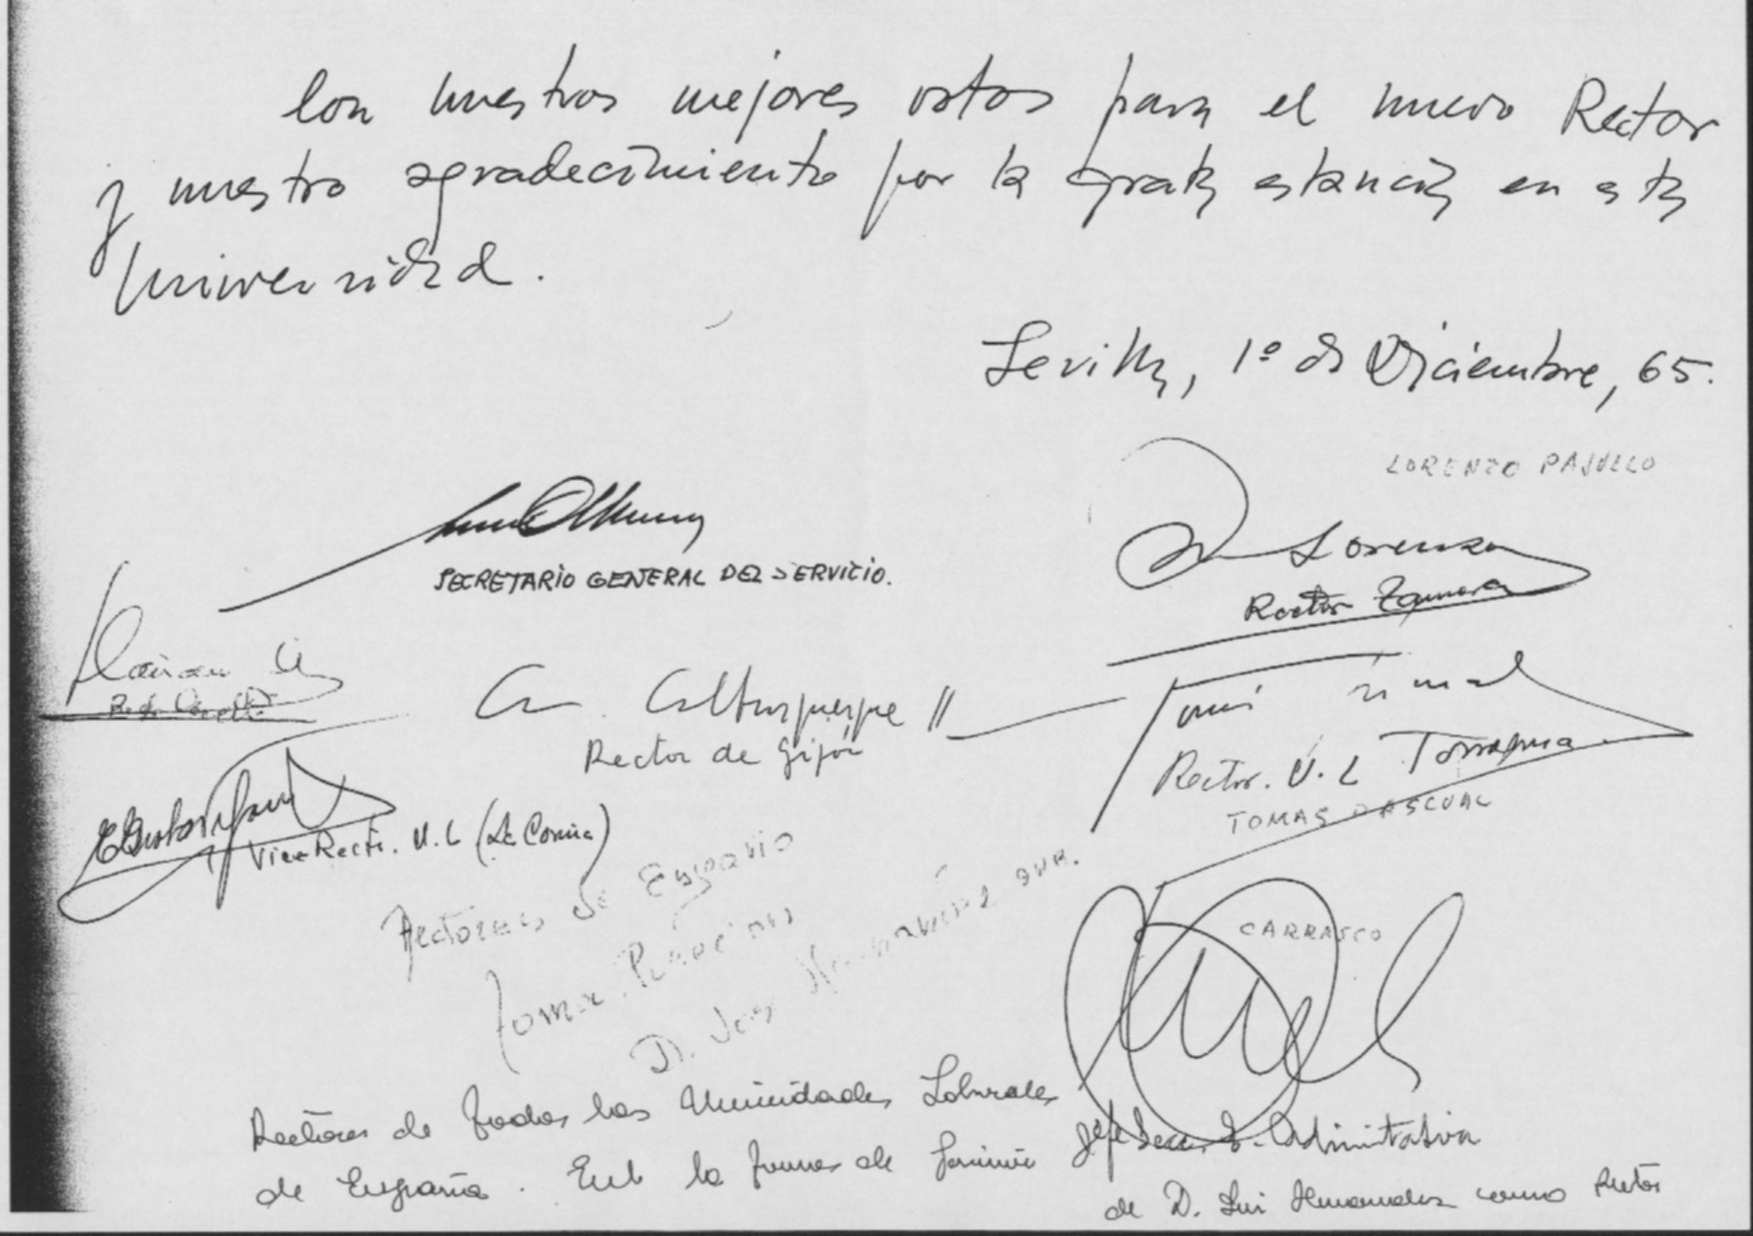 Con nuestros mejores votos para el nuevo Rector
y nuestro agradecimiento por la grata estancia en esta
Universidad.
Sevilla, 1º de Diciembre, 65.
LORENZO PAJUELO
SECRETARIO GENERAL DEL SERVICIO.
Lorenzo
Rector Zamora
Alburquerque
Rector de Gijón
Rector. U. L Tarragona
TOMAS PASCUAL
Vice Rector. U. L (La Coruña)
Rectores de
CARRASCO
D. José
Rectores de todas las Universidades Laborales
de España. En la toma de
Administrativa
de D. Luis Hernandez como Rector